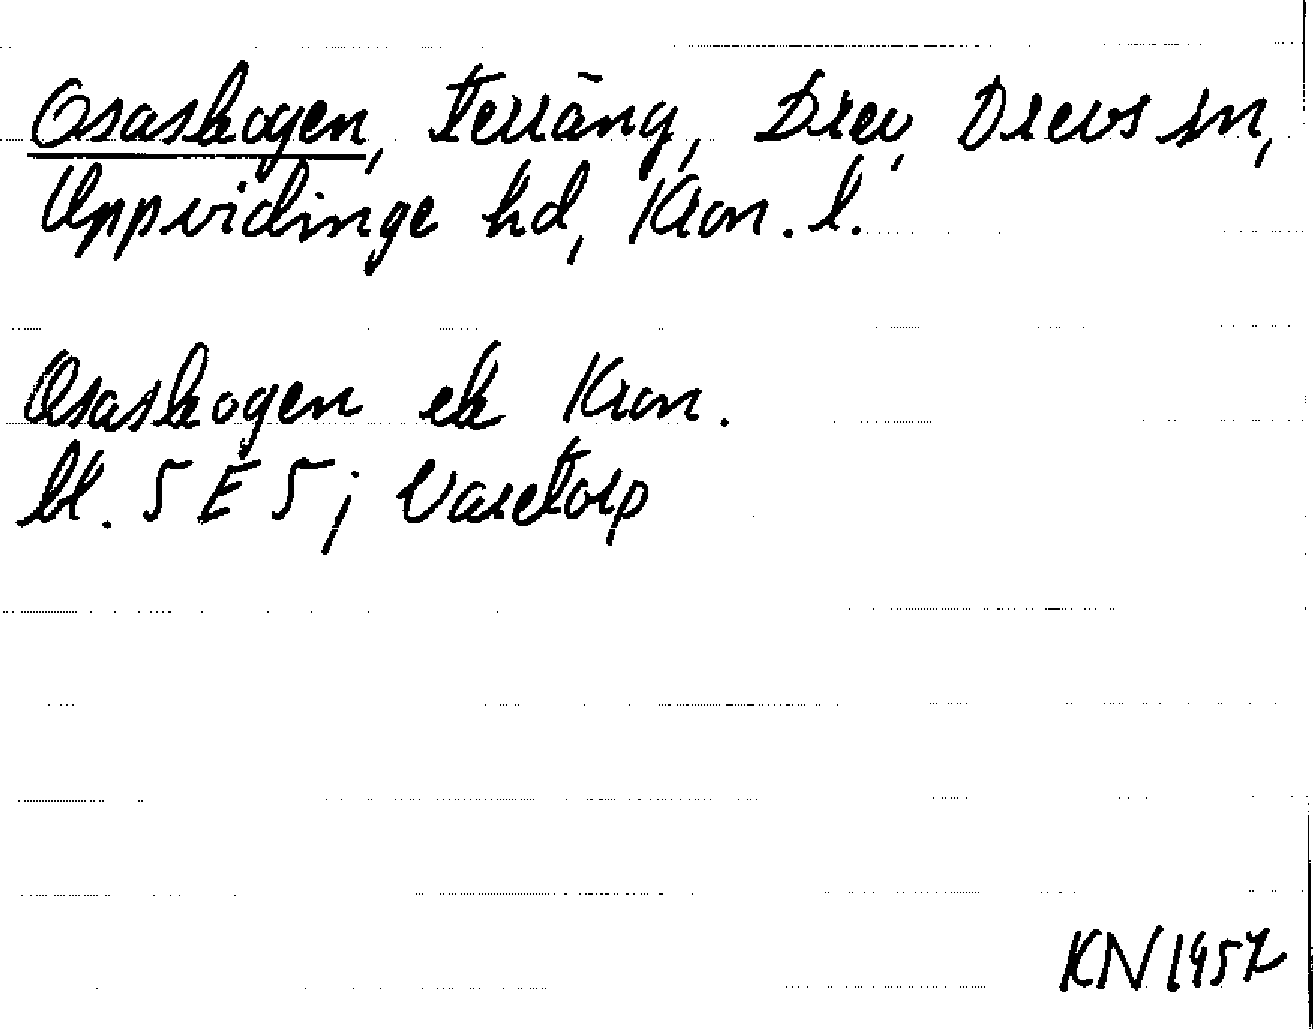 Osaskogen, terräng, Drev, Drevs sn,
Uppvidinge hd, Kron. l.
Osaskogen ek Kron.
bl. 5 E 5; Varetorp
KN 1957